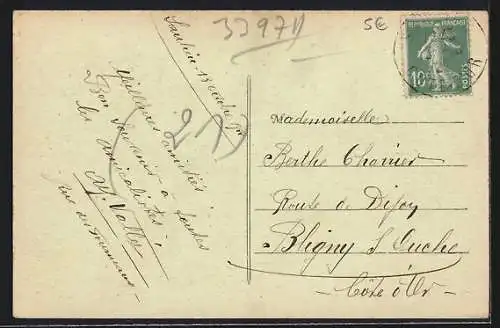 33971
5€
Saulieu 13 octobre
Meilleures amitiés
Bon souvenir à toutes
les amicalistes !
M. Vallet
rue des
27
REPUBLIQUE FRANÇAISE
10
POSTES
Mademoiselle
Berthe Charrier
Route de Dijon
Bligny s/ Ouche
Côte d'Or